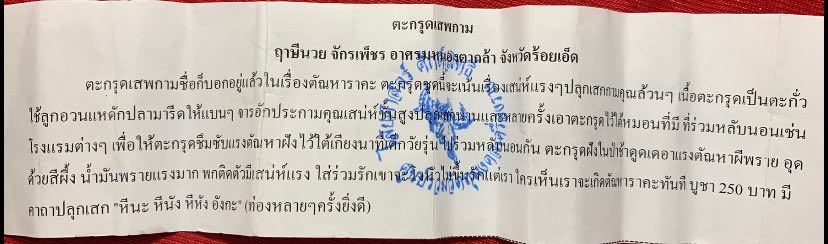 ตะกรุดเสพกาม
ฤาษีนวย จักรเพ็ชร อาศรมหนองตากล้า จังหวัดร้อยเอ็ด
ตะกรุดเสพกามชื่อก็บอกอยู่แล้วในเรื่องตัณหาราคะ ตะกรุดชุดนี้จะเน้นเรื่องเสน่ห์แรงๆปลุกเสกกามคุณล้วนๆ เนื้อตะกรุดเป็นตะกั่ว
ใช้ลูกอวนแหดักปลามารีดให้แบนๆ จารอักประกามคุณเสน่ห์ชั้นสูงปลุกเสกนานและหลายครั้งเอาตะกรุดไว้ใต้หมอนที่มี ที่ร่วมหลับนอนเช่น
โรงแรมต่างๆ เพื่อให้ตะกรุดซึมซับแรงตัณหาฝังไว้ใต้เถียงนาที่เด็กวัยรุ่น ไปร่วมหลับนอนกัน ตะกรุดฝังในป่าช้าดูดเดอาแรงตัณหาผีพราย อุด
ด้วยสีผึ้ง น้ำมันพรายแรงมาก พกติดตัวมีเสน่ห์แรง ใส่ร่วมรักเขาจะ ไม่ขึ้นรักแต่เรา ใครเห็นเราจะเกิดตัณหาราคะทันที บูชา 250 บาท มี
คาถาปลุกเสก "หีนะ หีนัง หีหัง อังกะ" (ท่องหลายๆครั้งยิ่งดี)